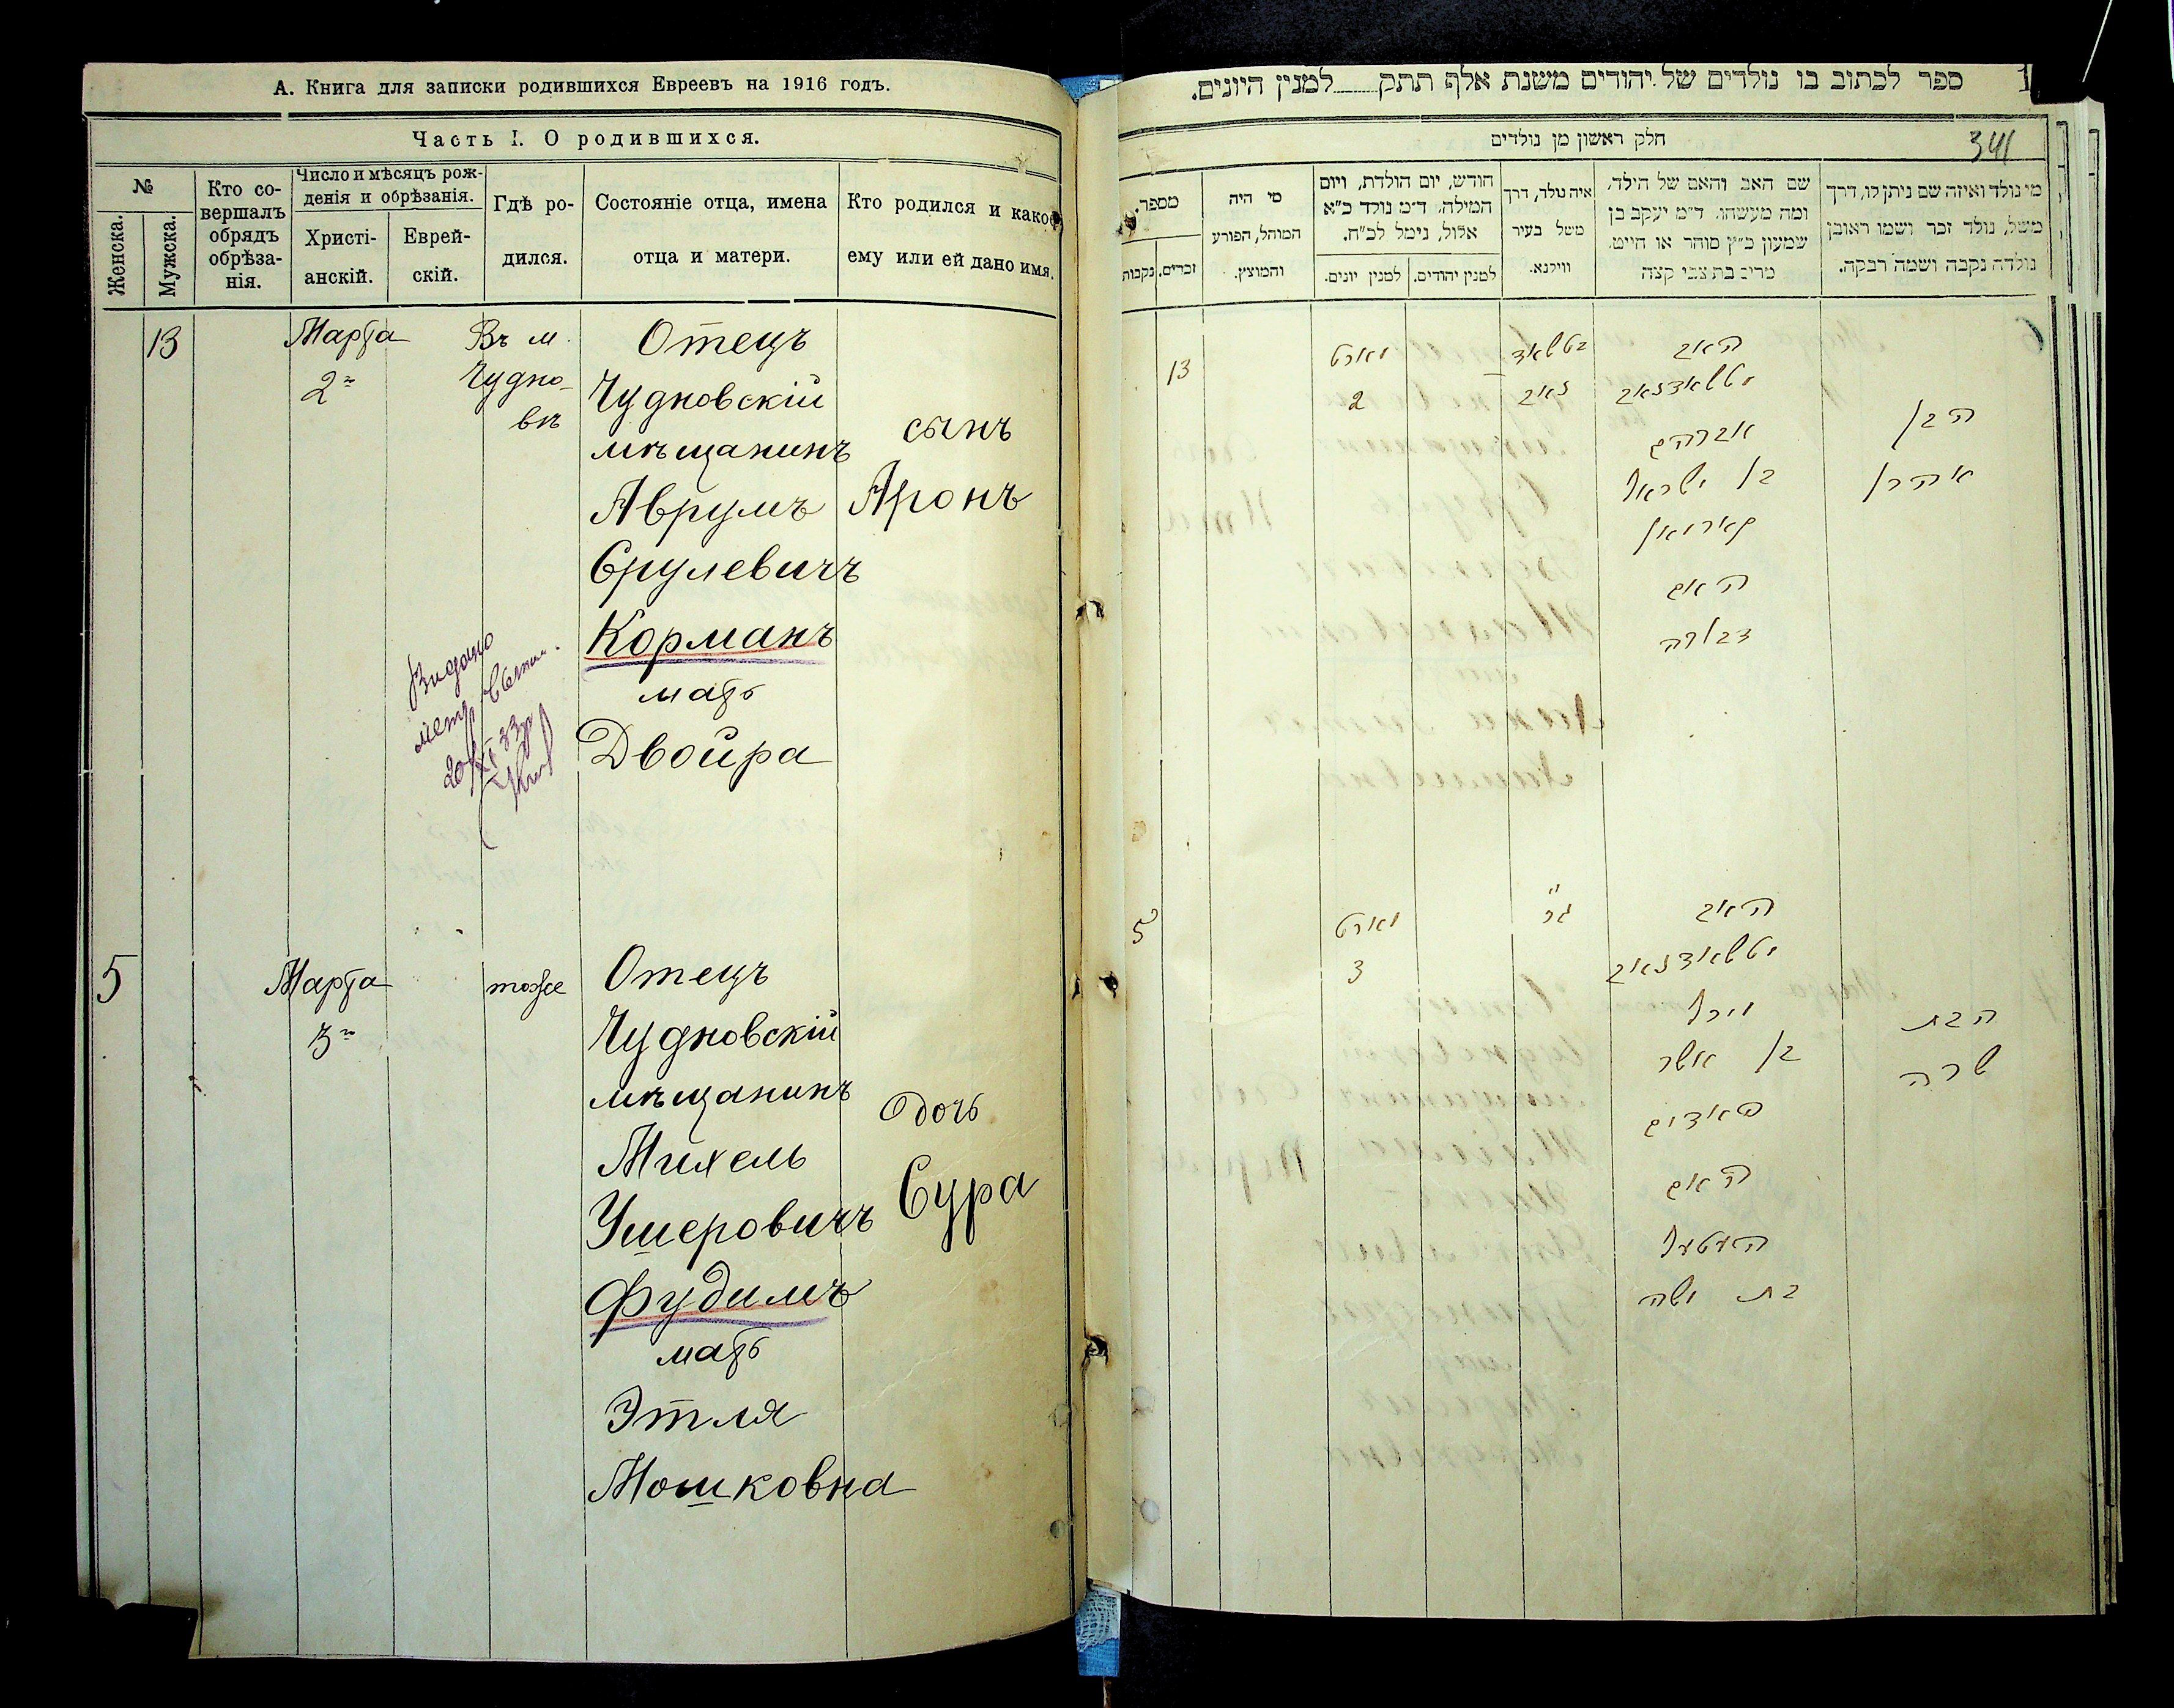 А. Книга для записки родившихся Евреевъ на 1916 годъ.
Часть I. О родившихся.
№
Женска.
Мужска.
Кто со-
вершалъ
обрядъ
обрѣза-
нія.
Число и мѣсяцъ рож-
денія и обрѣзанія.
Христі-
анскій.
Еврей-
скій.
Гдѣ ро-
дился.
Состояніе отца, имена
отца и матери.
Кто родился и какое
ему или ей дано имя.
13
Марта
2
Въ м.
Чудно-
вѣ
Отецъ
Чудновскій
мѣщанинъ
Аврумъ
Срулевичъ
Корманъ
мать
Двойра
сынъ
Аронъ
Видано
метр
20/XI 33р
5
Марта
3
тоже
Отецъ
Чудновскій
мѣщанинъ
Михель
Ушеровичъ
Фудимъ
мать
Этля
Мошковна
дочь
Сура
ספר לכתוב בו נולדים של יהודים משנת אלף תתק למנין היונים.
חלק ראשון מן נולדים
341
מי נולד ואיזה שם ניתן לו, דרך
משל, נולד זכר ושמו ראובן
נולדה נקבה ושמה רבקה.
שם האב והאם של הילד,
ומה מעשהו. ד״מ יעקב בן
שמעון כ״ץ סוחר או חייט,
מרים בת צבי קצה
איה נולד, דרך
משל בעיר
ווילנא.
חודש, יום הולדת, ויום
המילה. ד״מ נולד כ״א
אלול, נימל לכ״ח.
למנין יהודים.
למנין יונים.
מי היה
המוהל, הפורע
והמוצץ.
מספר.
זכרים.
נקבות
13
מארט
2
האב
אברהם
בן ישראל
קארמאן
האם
דבורה
הבן
אהרן
5
מארט
3
האב
בן אשר
האם
בת משה
הבת
שרה